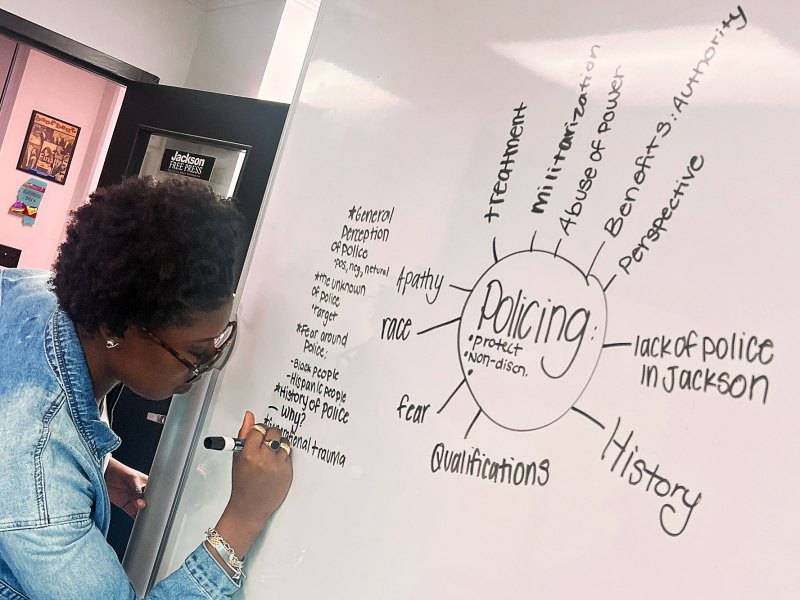 Jackson
FREE PRESS
*General
Perception
of police
*pos, neg, netural
*the unknown
of police
*target
*Fear around
Police:
-Black people
-Hispanic people
*History of Police
- Why?
trauma
Policing:
•protect
•Non-discn.
•
treatment
Militarization
Abuse of power
Benefits: Authority
Perspective
lack of police
In Jackson
History
Qualifications
fear
race
Apathy